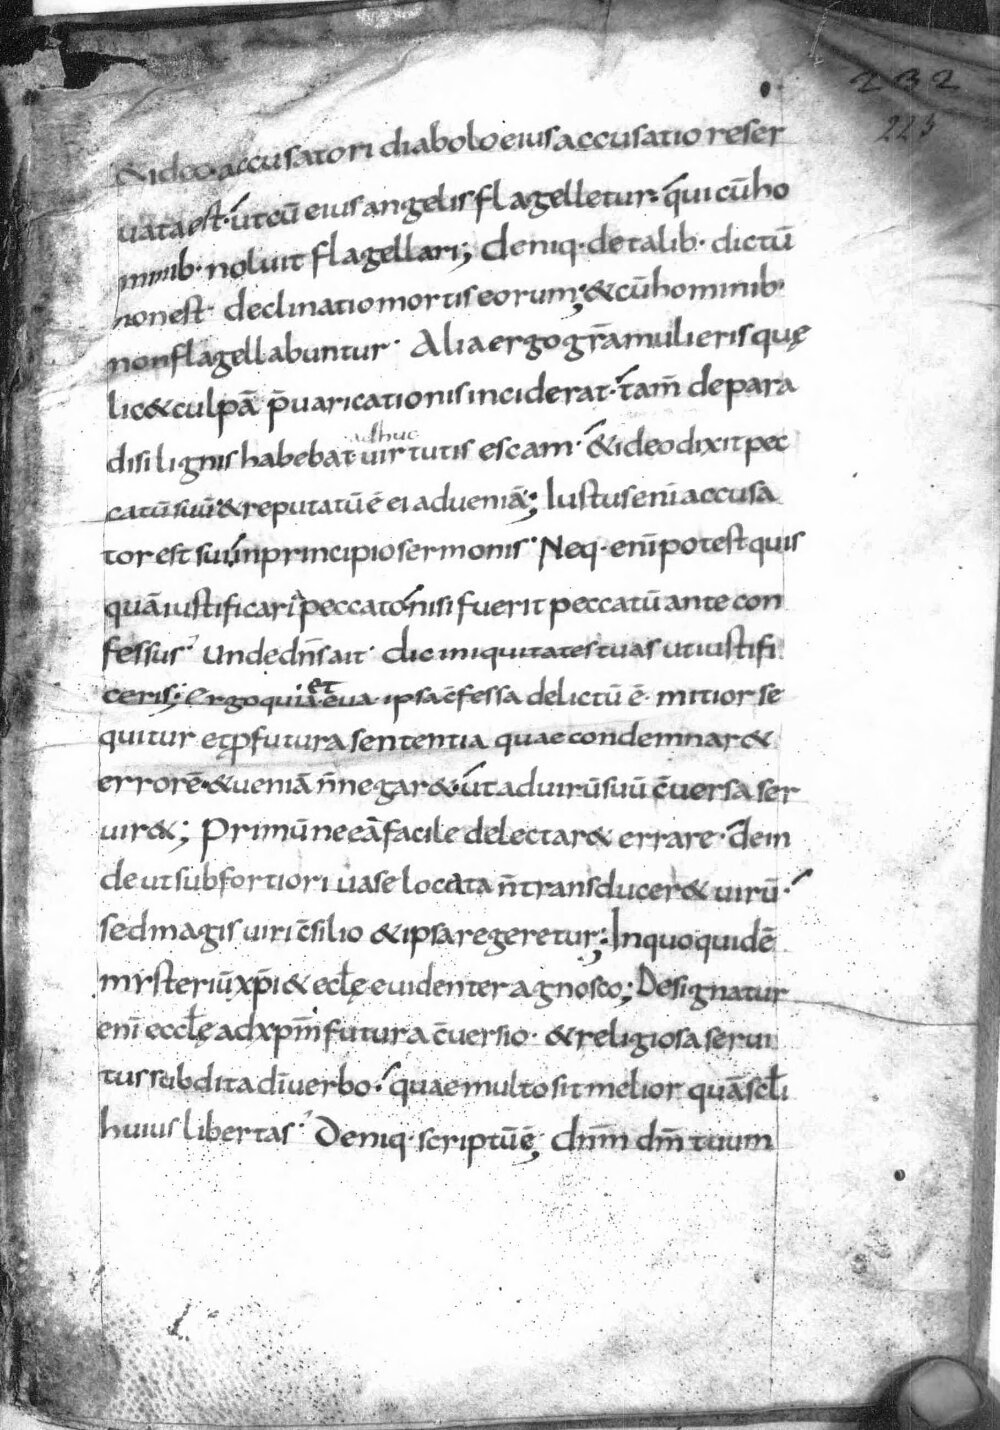 232
223
&ideo accusatori diabolo eius accusatio reser
uata est· ut cū eius angelis flagelletur· qui cū ho
minib· noluit flagellari; deniq· de talib· dictū
non est· declinatio mortis eorum; & cū hominib·
non flagellabuntur· Alia ergo gr̄a mulieris quę
lic& culpā p̄uaricationis inciderat· tam̄ de para
disi lignis habebat· adhuc uirtutis escam· & ideo dixit pec
catū suū· & reputatū ē ei ad ueniā; Iustus eni̅ accusa
tor est sui in principio sermonis· Neq· eni̅ potest quis
quā iustificari a peccato nisi fuerit peccatū ante con
fessus· Unde dn̄s ait· dic iniquitates tuas ut iustifi
ceris; Ergo quia· et eua· ipsa c̄fessa delictū ē· mitior se
quitur et ꝓfutura sententia quae condemnar&
errorē· & ueniā n̄ negar&· ut ad uirū suū c̄uersa ser
uir&; Primū ne eā facile delectar& errare· dein
de ut sub fortiori uase locata n̄ transducer& uirū·
sed magis uiri c̄silio & ipsa regeretur; In quo quidē
mysteriū xp̄i & eclę euidenter agnosco; Designatur
eni̅ ecclę ad xpm̄ futura c̄uersio· & religiosa serui
tus subdita dī uerbo· quae multo sit melior quā scl̄i
huius libertas· Deniq· scriptū ē; dnm̄ dm̄ tuum